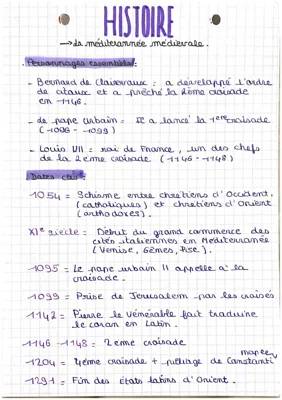 HISTOIRE
→ la méditerranée médiévale.
Personnages essentiels :
- Bernard de Clairvaux : a développé l'ordre
de citaux et a prêché la 2ème croisade
en 1146.
- Le pape Urbain : Il a lancé la 1ère croisade
- Louis VII : roi de France, un des chefs
de la 2ème croisade (1146-1148)
Dates clés :
1054 = Schisme entre chrétiens d'Occident.
(catholiques) et chrétiens d'Orient
(orthodoxes).
XIe siècle = Début du grand commerce des
cités italiennes en Méditerranée
(Venise, Gênes, Pise).
1095 = Le pape urbain II appelle a la
croisade.
1099 = Prise de Jerusalem par les croisés
1142 = Pierre le Vénérable fait traduire
le coran en latin.
1146-1148 = 2eme croisade
1204 = 4ème croisade + pillage de Constanti
nople
1291 = Fin des états latins d'Orient.